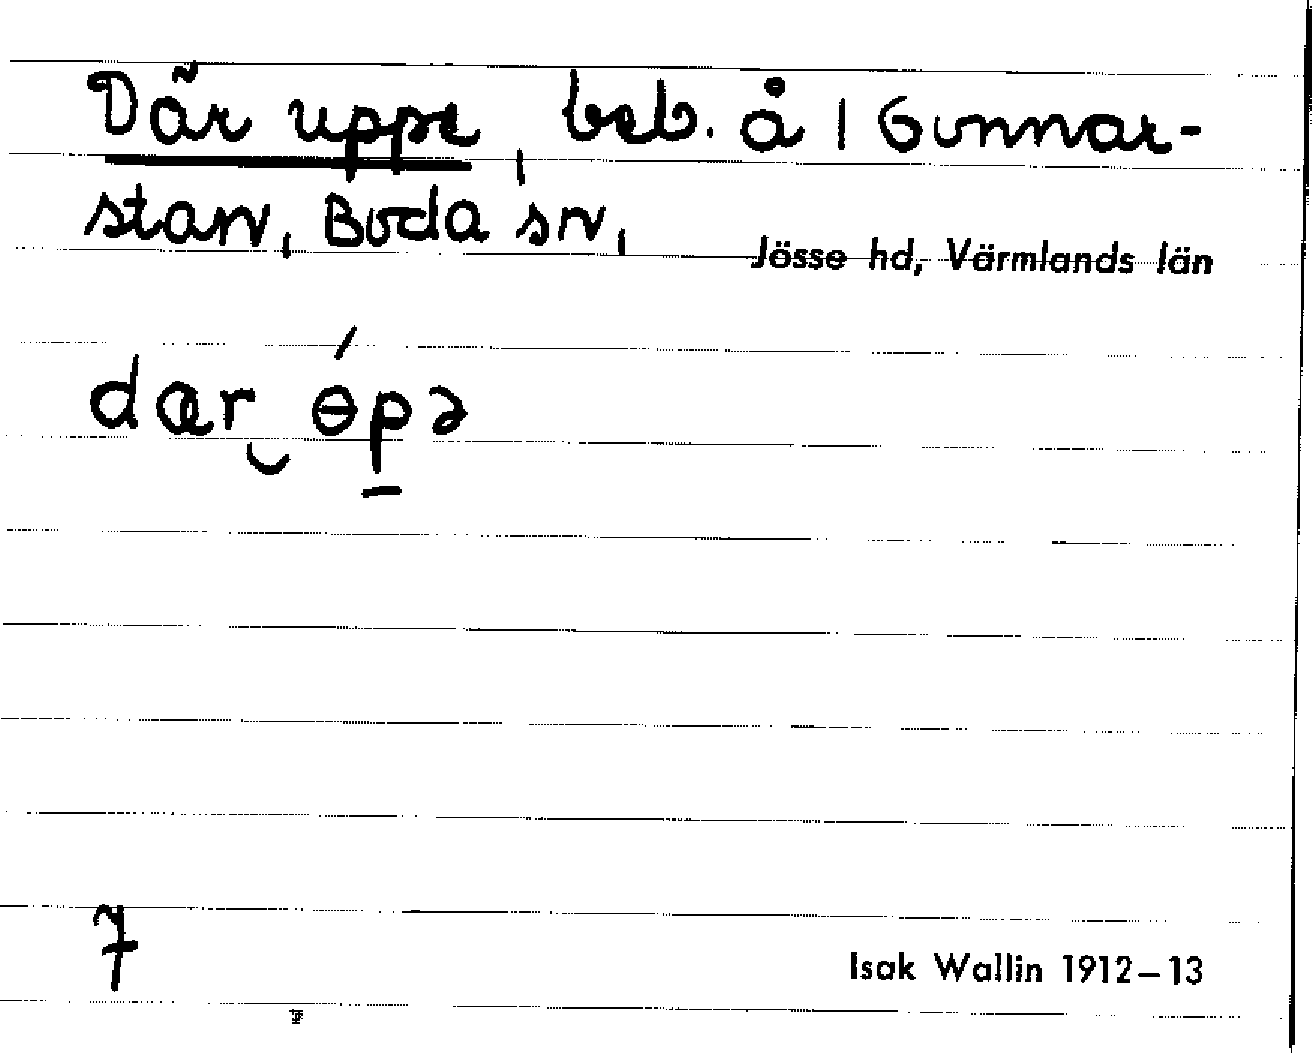 Där uppe, beb. å 1 Gunnar-
stan, Boda sn,
Jösse hd, Värmlands län
dær‿ɵ́p̠ə
7
Isak Wallin 1912–13